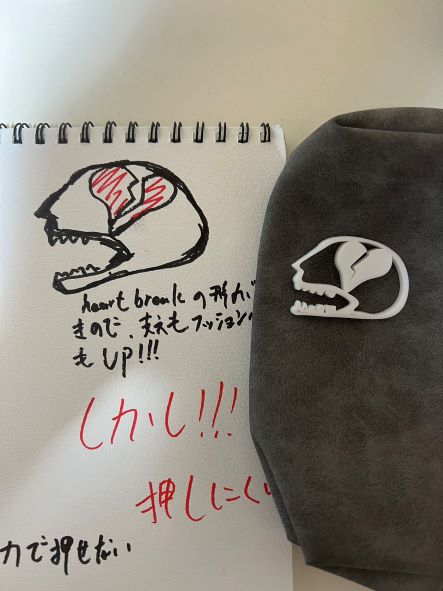 heart breakの形が
きので、支えもクッション
もUP!!!
しかし!!!
押しにくい
力で押せない